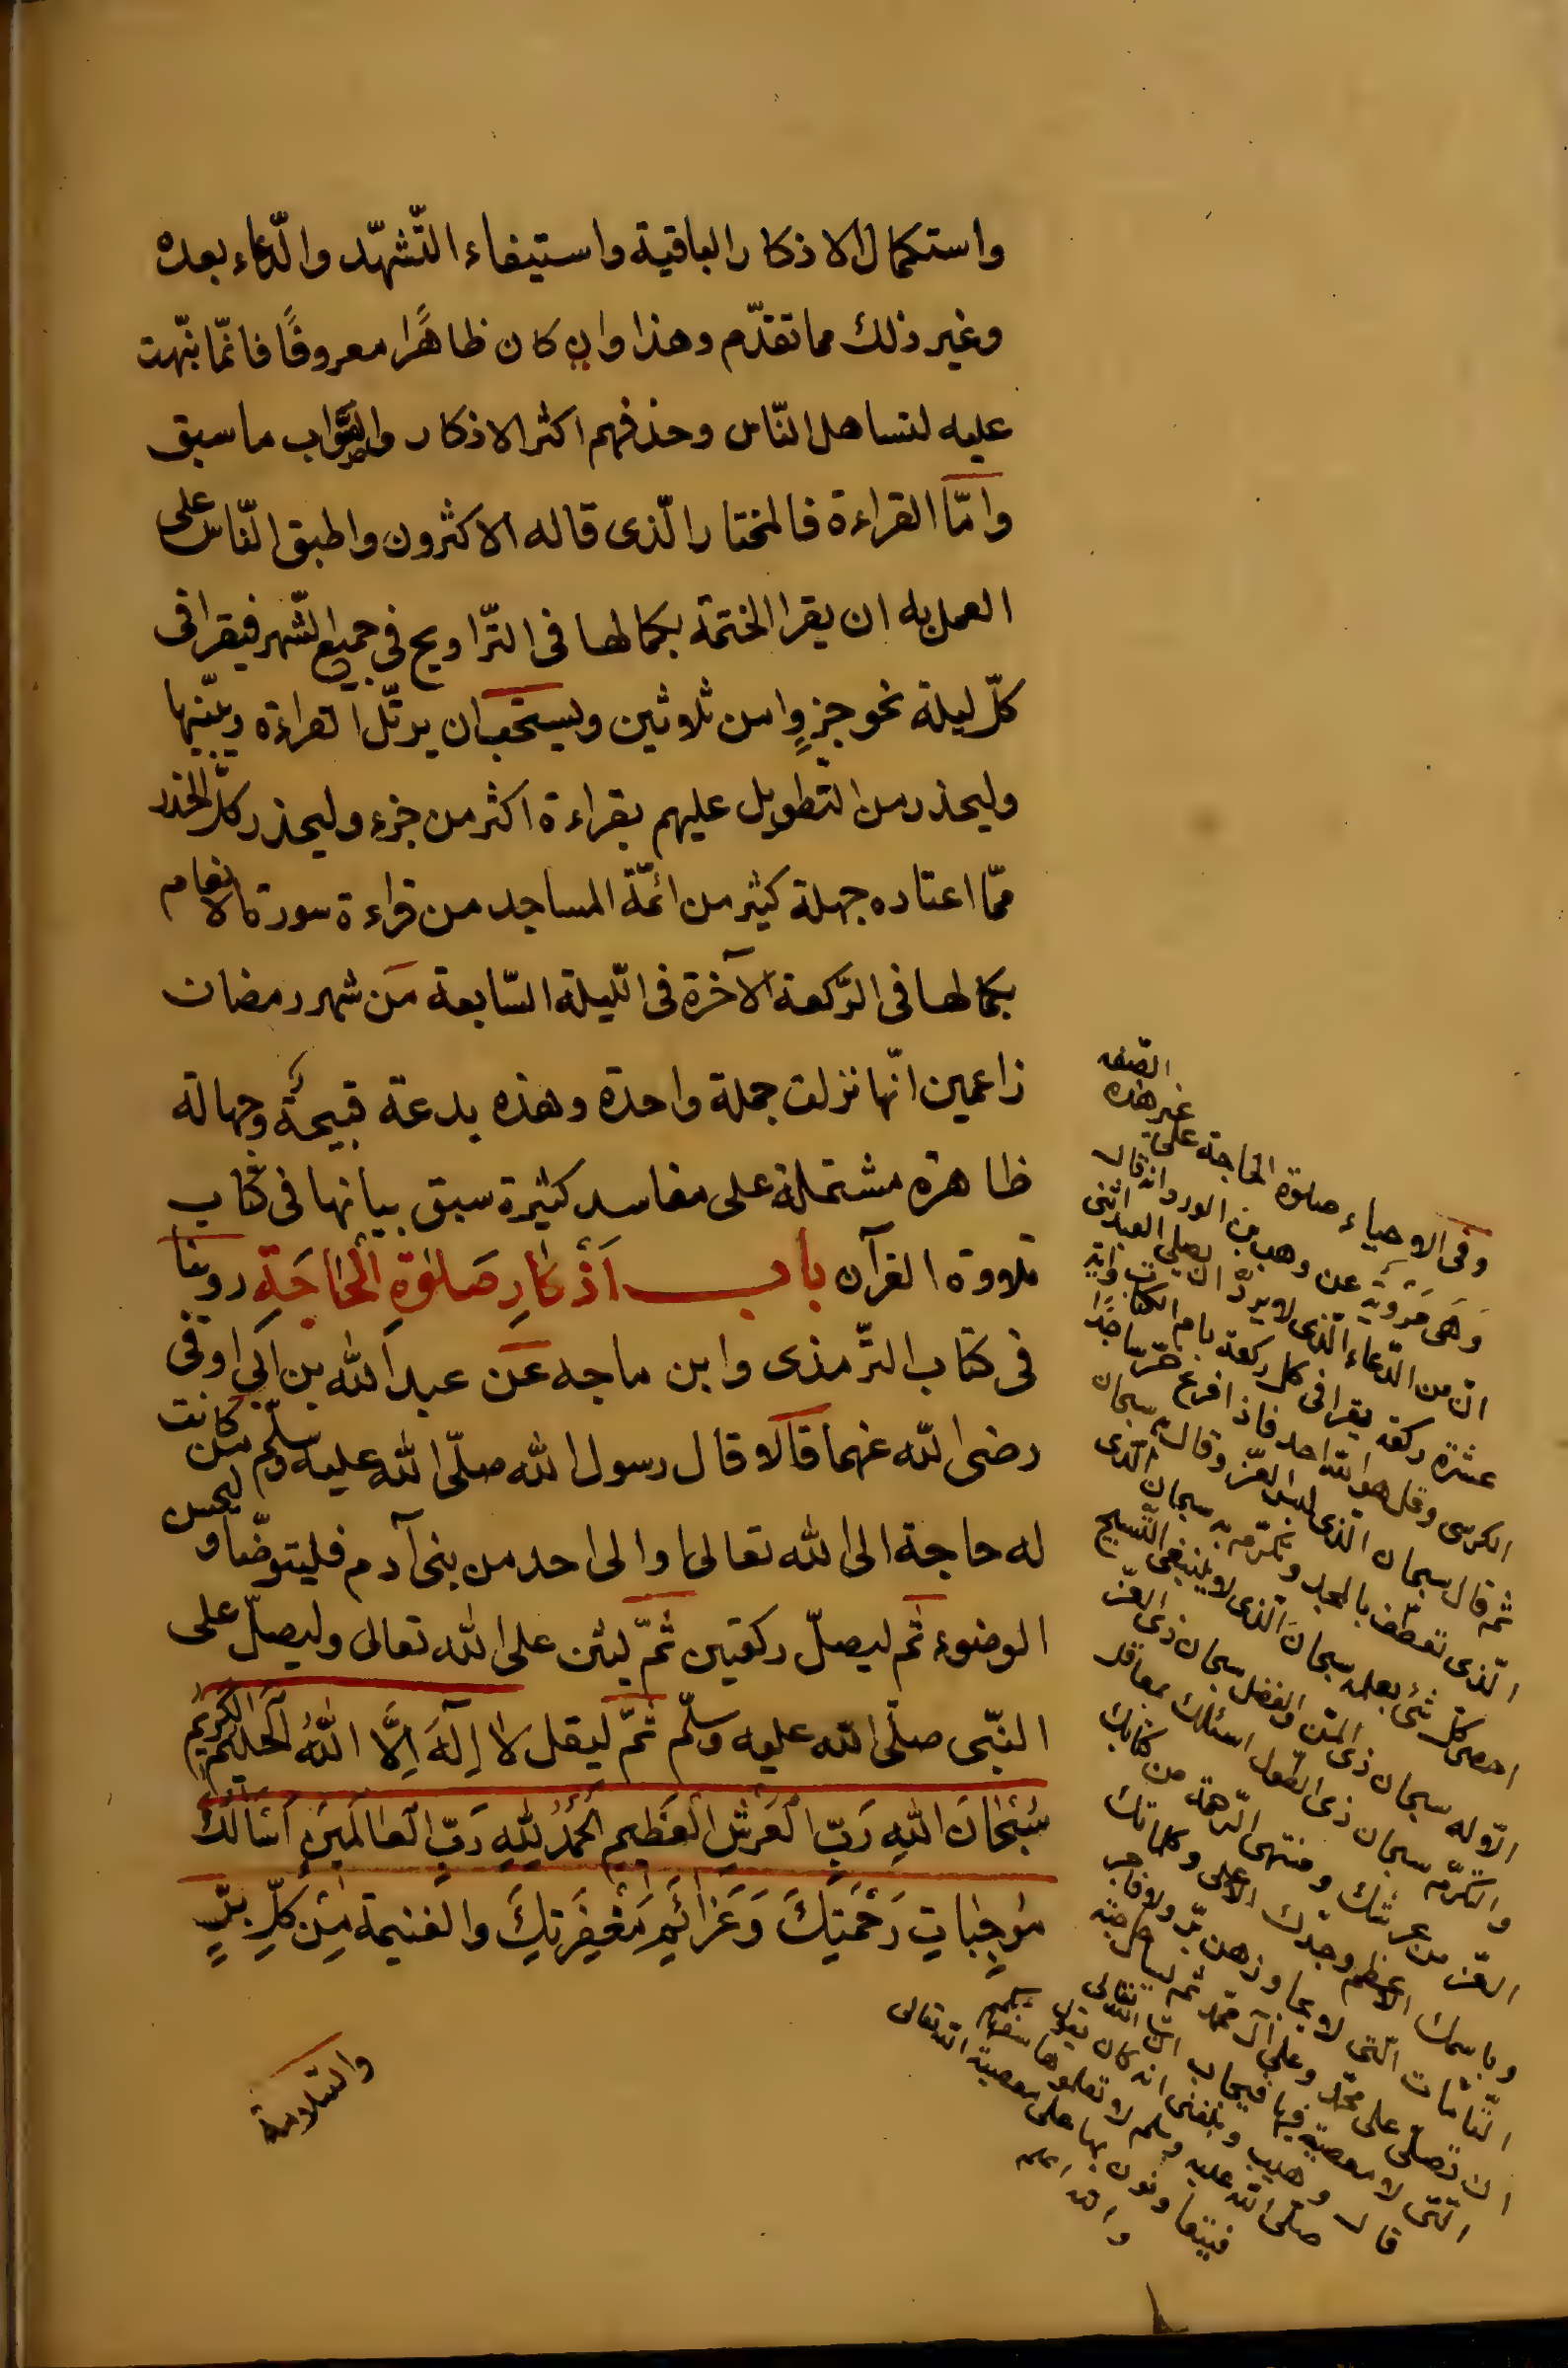 واستكمال الاذكار الباقية واستيفاء التّشهّد والدّعاء بعده
وغير ذلك مما تقدّم وهذا وان كان ظاهرًا معروفًا فانّما نبّهت
عليه لتساهل النّاس وحذفهم اكثر الاذكار والصّواب ما سبق
وامّا القراءة فالمختار الّذى قاله الاكثرون واطبق النّاس على
العمل به ان يقرا الختمة بكمالها فى التّراويح فى جميع الشّهر فيقرا فى
كلّ ليلة نحو جزء من ثلاثين ويستحب ان يرتّل القراءة ويبيّنها
وليحذر من التّطويل عليهم بقراءة اكثر من جزء وليحذر كلّ الحذر
ممّا اعتاده جهلة كثير من ائمّة المساجد من قراءة سورة الانعام
بكمالها فى الرّكعة الآخرة فى اللّيلة السّابعة من شهر رمضان
زاعمين انّها نزلت جملة واحدة وهذه بدعة قبيحة وجهالة
ظاهرة مشتملة على مفاسد كثيرة سبق بيانها فى كتاب
تلاوة القرآن باب اَذْكارِ صَلوٰةِ الْحَاجَةِ روينا
فى كتاب التّرمذى وابن ماجه عن عبد الله بن ابى اوفى
رضى الله عنهما قالا قال رسول الله صلّى الله عليه وسلّم من كانت
له حاجة الى الله تعالى او الى احد من بنى آدم فليتوضّا وليحسن
الوضوء ثم ليصلّ ركعتين ثمّ ليثن على الله تعالى وليصلّ على
النّبى صلّى الله عليه وسلّم ثمّ ليقل لا اِلَهَ اِلَّا اللّٰهُ الْحَلِيمُ الْكَرِيمُ
سُبْحَانَ اللهِ رَبِّ الْعَرْشِ الْعَظِيمِ الْحَمْدُ لِلّٰهِ رَبِّ الْعَالَمِينَ اَسْاَلُكَ
مُوجِبَاتِ رَحْمَتِكَ وَعَزَائِمَ مَغْفِرَتِكَ والغنيمة مِنْ كُلِّ بِرٍّ
والسّلامة
وفى الاحياء صلوة الحاجة على غير هذه الصفه
وَهى مَروية عن وهب بن الورد انه قال
ان من الدّعاء الّذى لا يردّ ان يصلى العبد اثنى
عشرة ركعة يقرا فى كل ركعة بام الكتاب واية
الكرسى وقل هو الله احد فاذا فرغ خرّ ساجدًا
ثم قال سبحان الّذى لبس العزّ وقال به سبحان
الّذى تعطّف بالمجد وتكرّم به سبحان الّذى
احصى كلّ شئ بعلمه سبحان الّذى لا ينبغى التّسبيح
الّا له سبحان ذى المنّ والفضل سبحان ذى العزّ
والتكرّم سبحان ذى الطّول اسئلك بمعاقد
العزّ من عرشك ومنتهى الرّحمة من كتابك
وباسمك الاعظم وجدّك الاعلى وكلماتك
التّامّات الّتى لا يجاوزهن برّ ولا فاجر
ان تصلّى على محمّد وعلى آل محمّد ثم يسال حاجته
الّتى لا معصية فيها فيجاب ان شاء الله تعالى
قال وهيب وبلغنى انه كان يقول
صلى الله عليه وسلم لا تعلموها سفهاءكم
فيتعاونون بها على معصية الله تعالى
والله اعلم